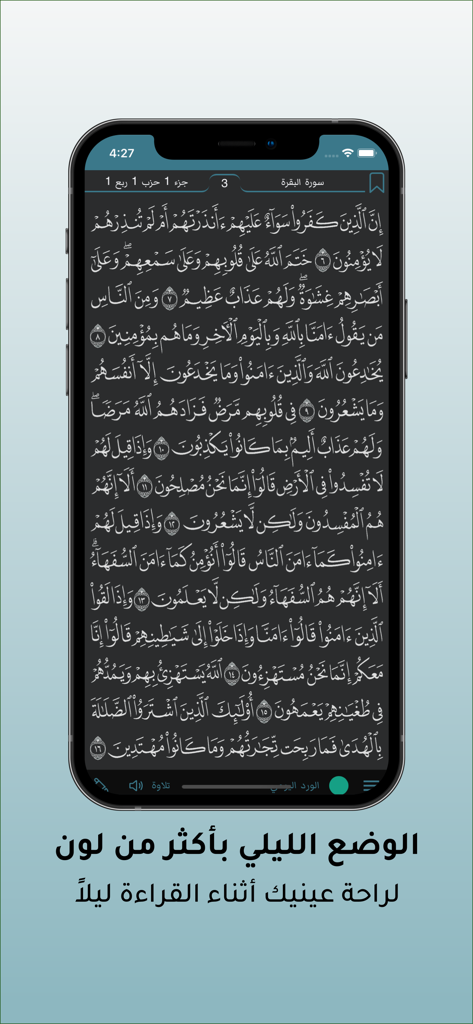 4:27
سورة البقرة 3 جزء 1 حزب 1 ربع 1
إِنَّ ٱلَّذِينَ كَفَرُوا۟ سَوَآءٌ عَلَيْهِمْ ءَأَنذَرْتَهُمْ أَمْ لَمْ تُنذِرْهُمْ
لَا يُؤْمِنُونَ ٦ خَتَمَ ٱللَّهُ عَلَىٰ قُلُوبِهِمْ وَعَلَىٰ سَمْعِهِمْ ۖ وَعَلَىٰٓ
أَبْصَٰرِهِمْ غِشَٰوَةٌ ۖ وَلَهُمْ عَذَابٌ عَظِيمٌ ٧ وَمِنَ ٱلنَّاسِ
مَن يَقُولُ ءَامَنَّا بِٱللَّهِ وَبِٱلْيَوْمِ ٱلْءَاخِرِ وَمَا هُم بِمُؤْمِنِينَ ٨
يُخَٰدِعُونَ ٱللَّهَ وَٱلَّذِينَ ءَامَنُوا۟ وَمَا يَخْدَعُونَ إِلَّآ أَنفُسَهُمْ
وَمَا يَشْعُرُونَ ٩ فِى قُلُوبِهِم مَّرَضٌ فَزَادَهُمُ ٱللَّهُ مَرَضًا ۖ
وَلَهُمْ عَذَابٌ أَلِيمٌۢ بِمَا كَانُوا۟ يَكْذِبُونَ ١٠ وَإِذَا قِيلَ لَهُمْ
لَا تُفْسِدُوا۟ فِى ٱلْأَرْضِ قَالُوٓا۟ إِنَّمَا نَحْنُ مُصْلِحُونَ ١١ أَلَآ إِنَّهُمْ
هُمُ ٱلْمُفْسِدُونَ وَلَٰكِن لَّا يَشْعُرُونَ ١٢ وَإِذَا قِيلَ لَهُمْ
ءَامِنُوا۟ كَمَآ ءَامَنَ ٱلنَّاسُ قَالُوٓا۟ أَنُؤْمِنُ كَمَآ ءَامَنَ ٱلسُّفَهَآءُ ۗ
أَلَآ إِنَّهُمْ هُمُ ٱلسُّفَهَآءُ وَلَٰكِن لَّا يَعْلَمُونَ ١٣ وَإِذَا لَقُوا۟
ٱلَّذِينَ ءَامَنُوا۟ قَالُوٓا۟ ءَامَنَّا وَإِذَا خَلَوْا۟ إِلَىٰ شَيَٰطِينِهِمْ قَالُوٓا۟ إِنَّا
مَعَكُمْ إِنَّمَا نَحْنُ مُسْتَهْزِءُونَ ١٤ ٱللَّهُ يَسْتَهْزِئُ بِهِمْ وَيَمُدُّهُمْ
فِى طُغْيَٰنِهِمْ يَعْمَهُونَ ١٥ أُو۟لَٰٓئِكَ ٱلَّذِينَ ٱشْتَرَوُا۟ ٱلضَّلَٰلَةَ
بِٱلْهُدَىٰ فَمَا رَبِحَت تِّجَٰرَتُهُمْ وَمَا كَانُوا۟ مُهْتَدِينَ ١٦
الورد اليومي تلاوة
الوضع الليلي بأكثر من لون
لراحة عينيك أثناء القراءة ليلاً